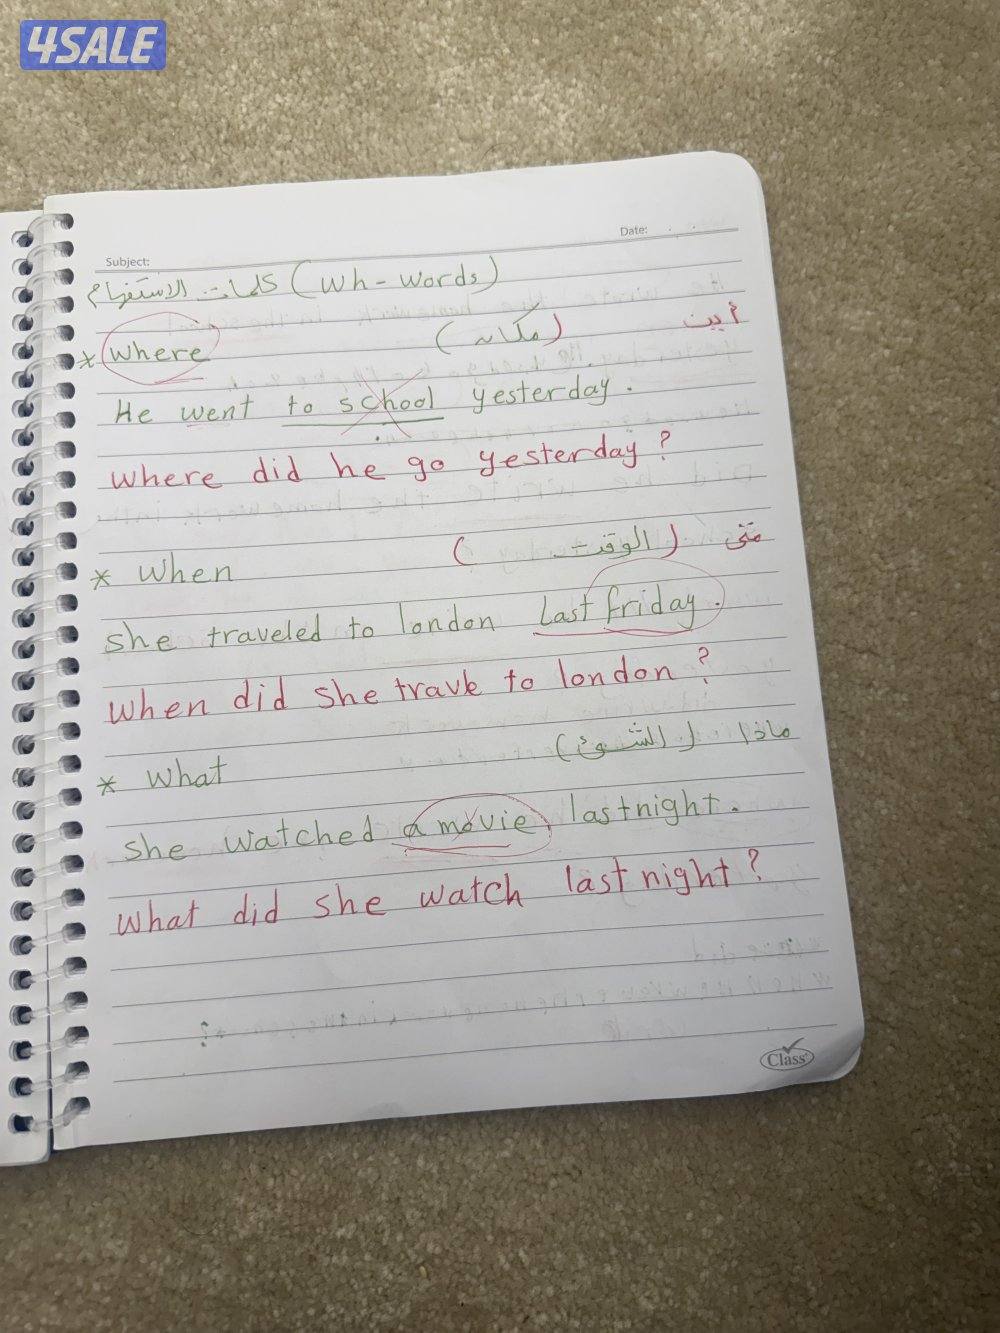 4SALE
Date:
Subject:
كلمات الاستفهام (Wh - words)
* Where (مكان) أين
He went to school yesterday.
Where did he go yesterday?
* When (الوقت) متى
She traveled to london last friday.
When did she travle to london?
* What (الشيئ) ماذا
She watched a movie lastnight.
What did she watch last night?
Class